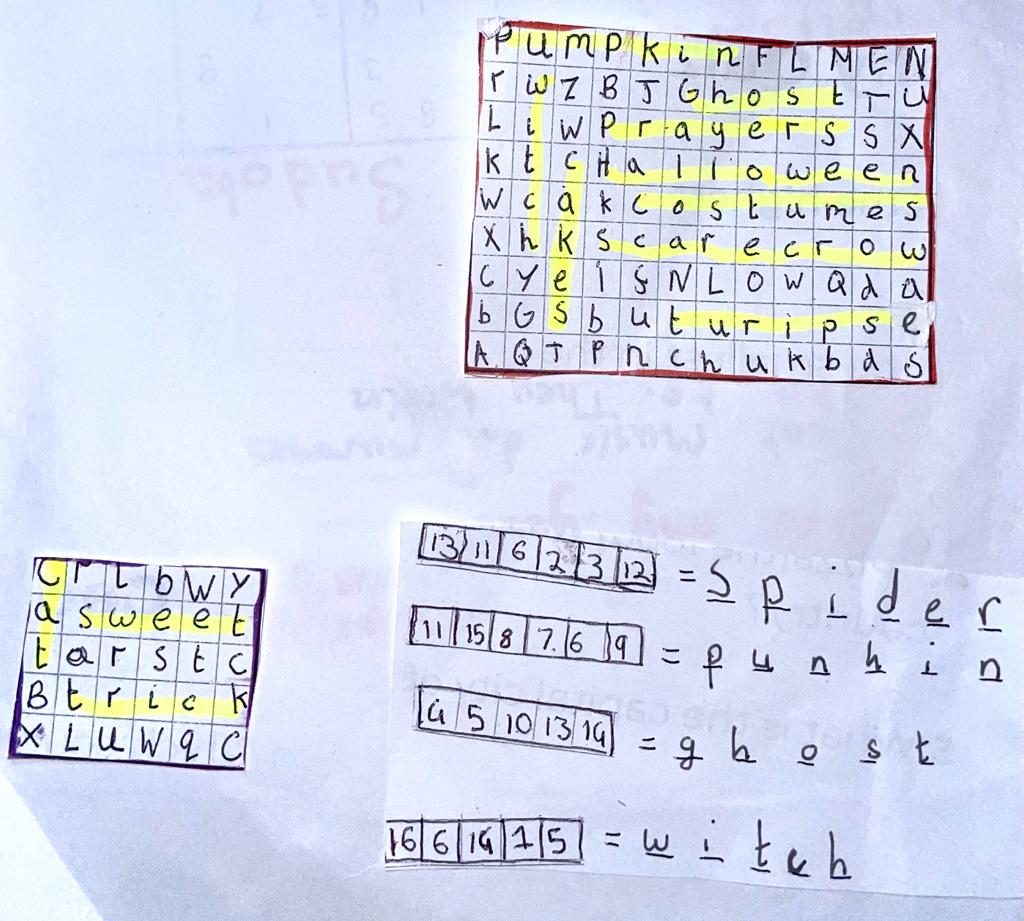 P u m p k i n F L M E N
r w Z B J G h o s t T U
L i W P r a y e r s S X
k t C H a l l o w e e n
W c a k C o s t u m e s
X h k S c a r e c r o w
C Y e i S N L O W Q d a
b G S b u t u r i p s e
A Q T P n c h u k b d s
C r L b W Y
a s w e e t
t a r s t C
B t r i c k
X L U W q C
13 11 6 2 3 12 = S p i d e r
11 15 8 7 6 9 = p u n k i n
4 5 10 13 14 = g h o s t
16 6 14 1 5 = w i t c h